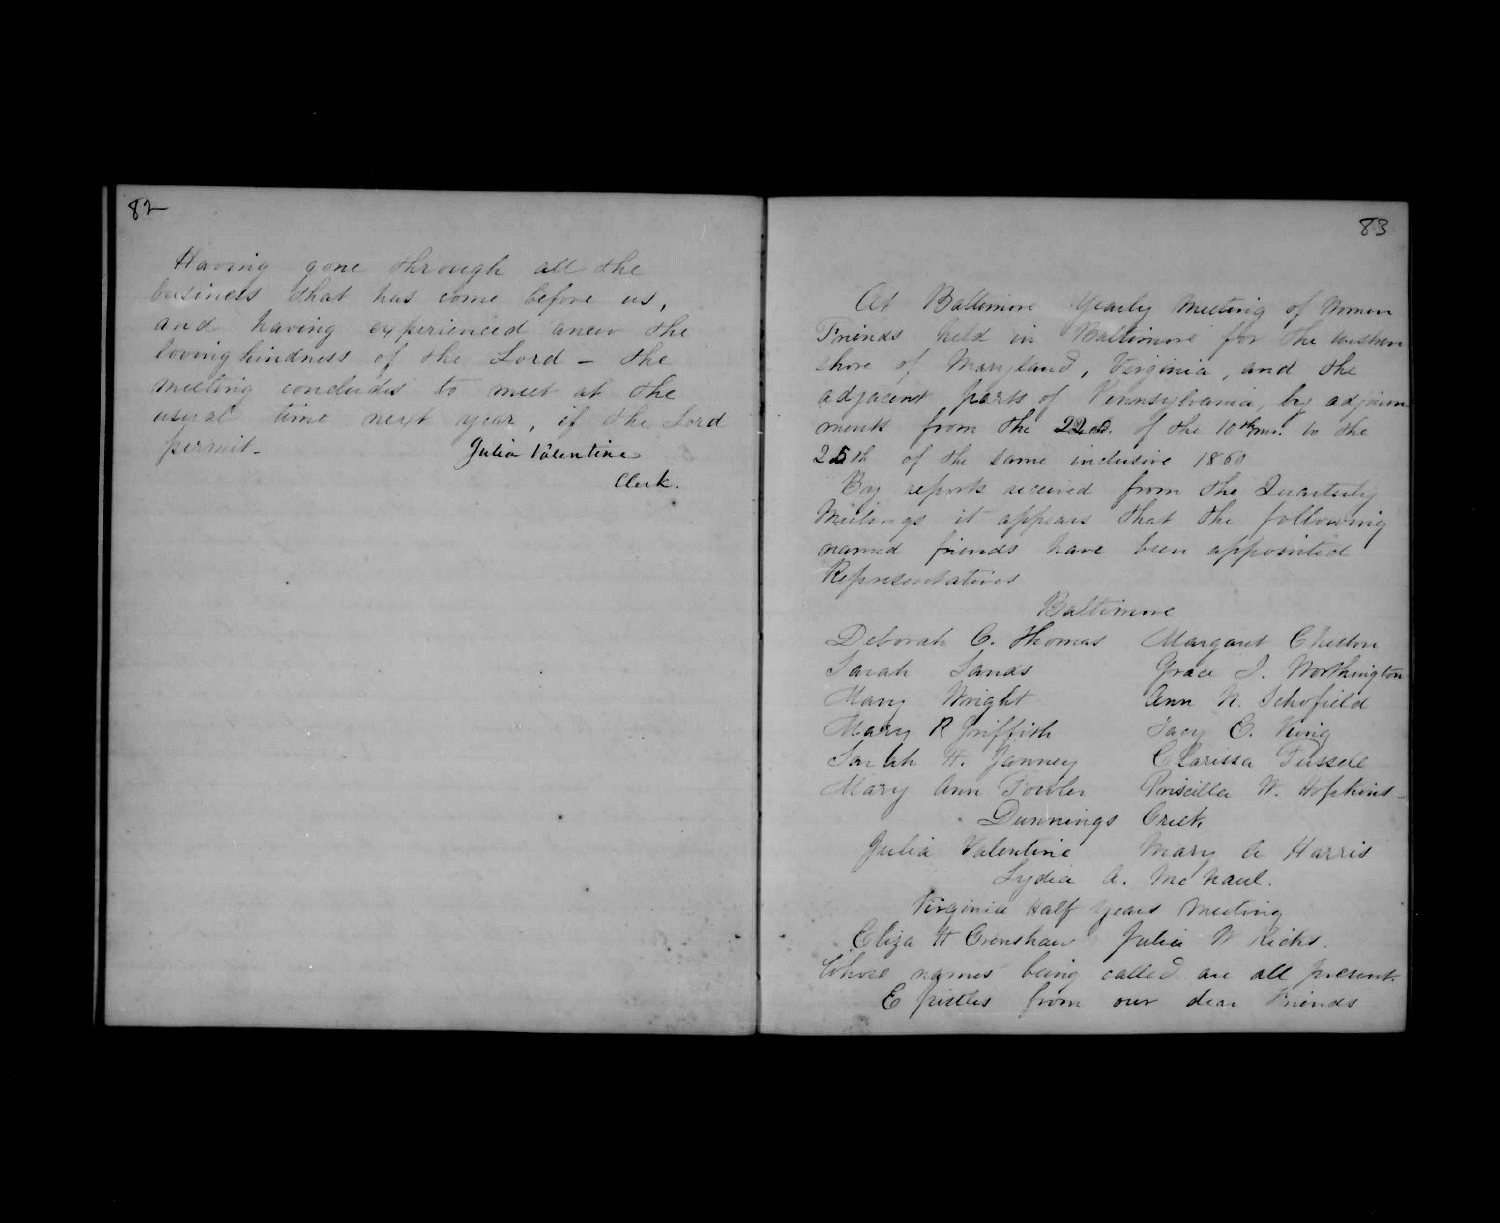 82
Having gone through all the
business that has come before us,
and having experienced anew the
lovingkindness of the Lord - the
meeting concludes to meet at the
usual time next year, if the Lord
permit -
Julia Valentine
Clerk.
83
At Baltimore Yearly Meeting of Women
Friends held in Baltimore for the western
shore of Maryland, Virginia, and the
adjacent parts of Pennsylvania, by adjourn
ments from the 22nd. of the 10th mo. to the
25th of the same inclusive 1860
By reports received from the Quarterly
Meetings it appears that the following
named friends have been appointed
Representatives
Baltimore
Deborah C. Thomas Margaret Cheston
Sarah Sands Grace I. Worthington
Mary Wright Ann N. Schofield
Mary R Griffith Tacy C. King
Sarah H. Janney Clarissa
Mary Ann Fowler Priscilla W. Hopkins -
Dunnings Creek
Julia Valentine Mary A Harris
Lydia A. McNaul.
Virginia Half Years Meeting
Eliza H Crenshaw Julia W Ricks.
Whose names being called are all present.
Epistles from our dear Friends